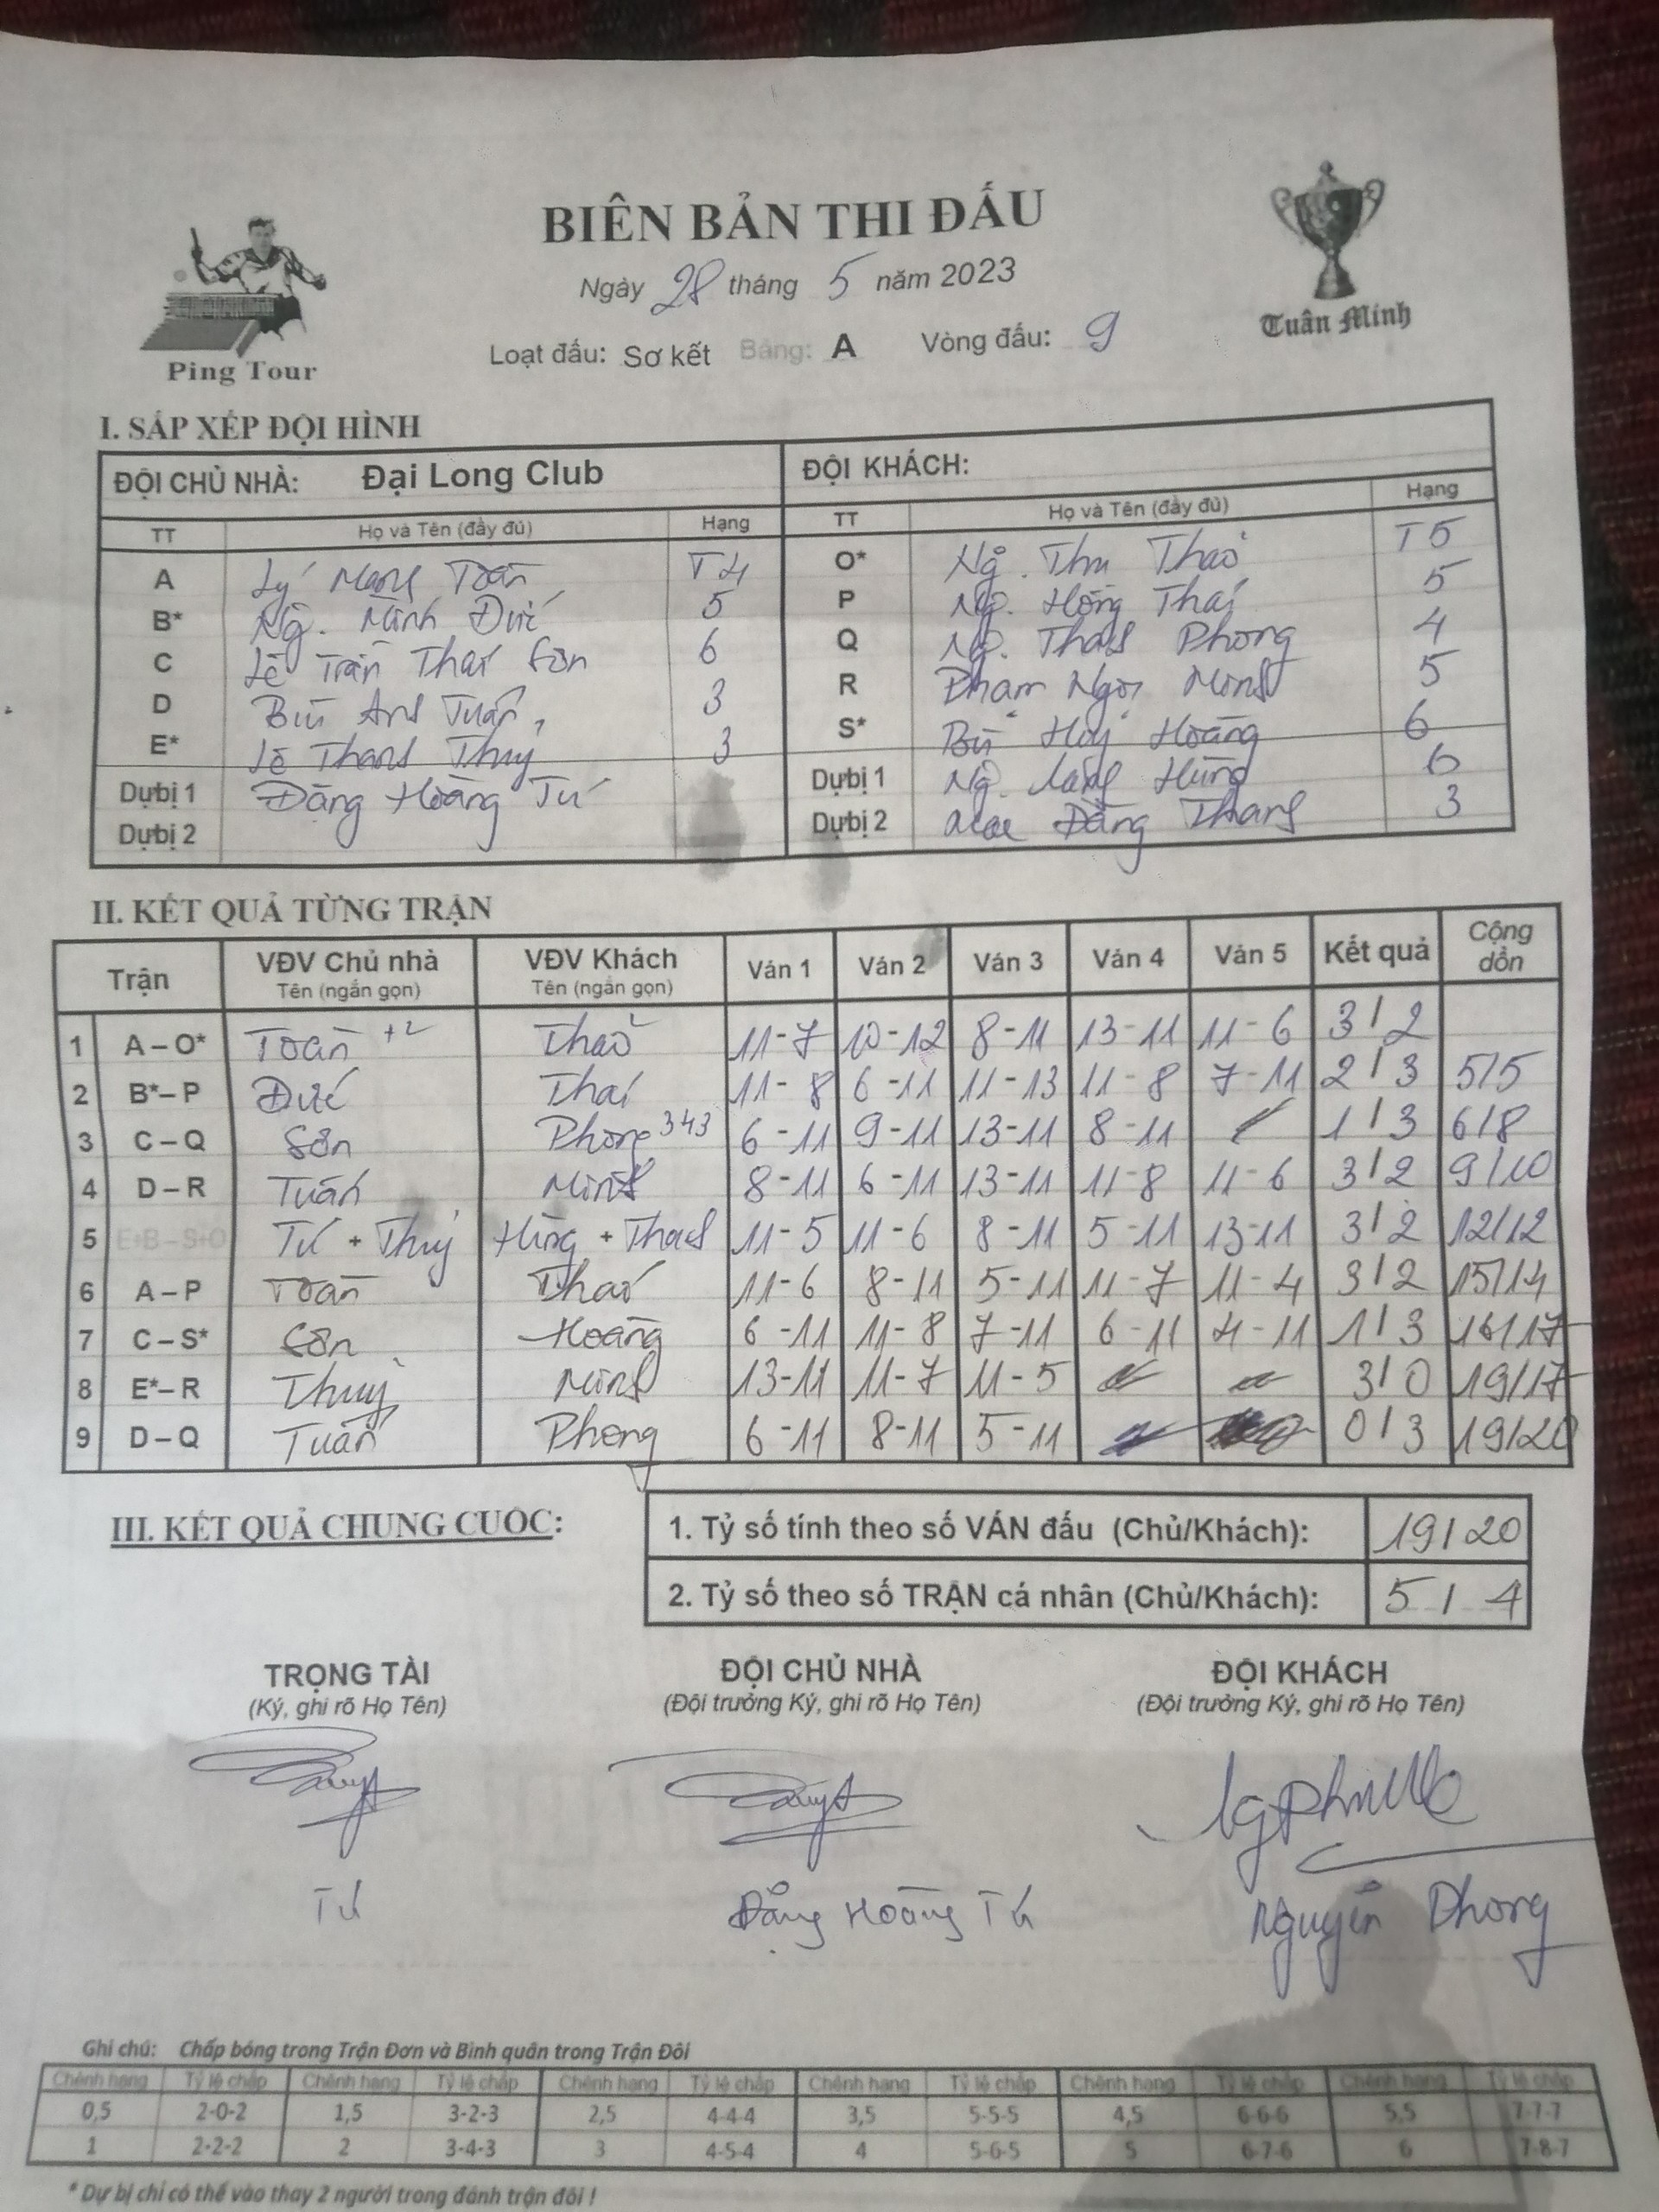 BIÊN BẢN THI ĐẤU
Ngày 28 tháng 5 năm 2023
Ping Tour
Tuân Minh
Loạt đấu: Sơ kết Bảng: A Vòng đấu: 9
I. SẮP XẾP ĐỘI HÌNH
ĐỘI CHỦ NHÀ: Đại Long Club ĐỘI KHÁCH:
TT Họ và Tên (đầy đủ) Hạng TT Họ và Tên (đầy đủ) Hạng
A Lý Mạnh Toàn T4 O* Ng. Thu Thảo T5
B* Ng. Minh Đức 5 P Ng. Hồng Thái 5
C Lê Trần Thái Sơn 6 Q Ng. Thanh Phong 4
D Bùi Anh Tuấn 3 R Phạm Ngọc Minh 5
E* Lê Thanh Thuỷ 3 S* Bùi Huy Hoàng 6
Dựbị 1 Đặng Hoàng Tú Dựbị 1 Ng. Hùng 6
Dựbị 2 Dựbị 2 Đăng 3
II. KẾT QUẢ TỪNG TRẬN
Trận VĐV Chủ nhà Tên (ngắn gọn) VĐV Khách Tên (ngắn gọn) Ván 1 Ván 2 Ván 3 Ván 4 Ván 5 Kết quả Cộng dồn
1 A – O* Toàn +2 Thảo 11-7 10-12 8-11 13-11 11-6 3/2
2 B* – P Đức Thái 11-8 6-11 11-13 11-8 7-11 2/3 5/5
3 C – Q Sơn Phong 343 6-11 9-11 13-11 8-11 1/3 6/8
4 D – R Tuấn Minh 8-11 6-11 13-11 11-8 11-6 3/2 9/10
5 E+B – S+O Tú + Thuỷ Hùng + 11-5 11-6 8-11 5-11 13-11 3/2 12/12
6 A – P Toàn Thái 11-6 8-11 5-11 11-7 11-4 3/2 15/14
7 C – S* Sơn Hoàng 6-11 11-8 7-11 6-11 4-11 1/3 16/17
8 E* – R Thuỷ Minh 13-11 11-7 11-5 3/0 19/17
9 D – Q Tuấn Phong 6-11 8-11 5-11 0/3 19/20
III. KẾT QUẢ CHUNG CUỘC:
1. Tỷ số tính theo số VÁN đấu (Chủ/Khách): 19/20
2. Tỷ số theo số TRẬN cá nhân (Chủ/Khách): 5/4
TRỌNG TÀI ĐỘI CHỦ NHÀ ĐỘI KHÁCH
(Ký, ghi rõ Họ Tên) (Đội trưởng Ký, ghi rõ Họ Tên) (Đội trưởng Ký, ghi rõ Họ Tên)
Tú Đặng Hoàng Tú Nguyễn Phong
Ghi chú: Chấp bóng trong Trận Đơn và Bình quân trong Trận Đôi
Chênh hạng Tỷ lệ chấp Chênh hạng Tỷ lệ chấp Chênh hạng Tỷ lệ chấp Chênh hạng Tỷ lệ chấp Chênh hạng Tỷ lệ chấp Chênh hạng Tỷ lệ chấp
0,5 2-0-2 1,5 3-2-3 2,5 4-4-4 3,5 5-5-5 4,5 6-6-6 5,5 7-7-7
1 2-2-2 2 3-4-3 3 4-5-4 4 5-6-5 5 6-7-6 6 7-8-7
* Dự bị chỉ có thể vào thay 2 người trong đánh trận đôi !